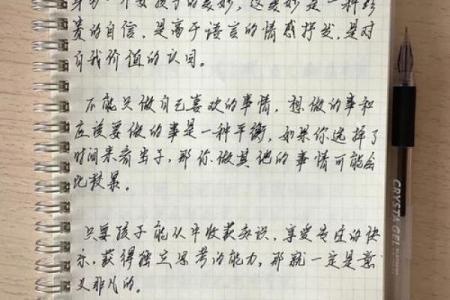 责的自信，是高于语言的情感抒发，是对
自我价值的认同。
不能只做自己喜欢的事情，想做的事和
应该要做的事是一种平衡，如果你选择了
时间来看当子，那你做其他的事情可能会
比较累。
只要孩子能从中收获知识，享受专注的快
乐，获得独立思考的能力，那就一定是意
义非凡的。
CRYSTAL GEL